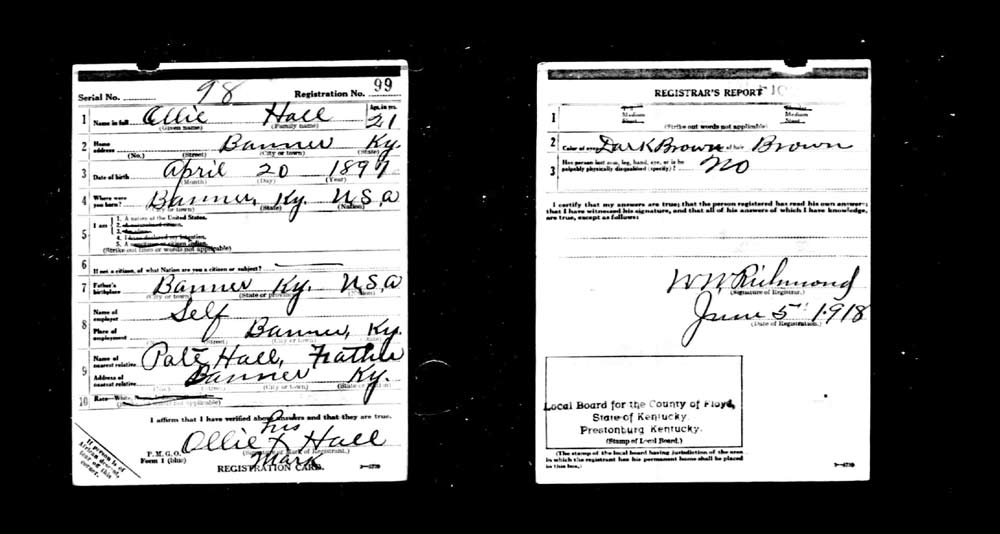 Serial No. 98 Registration No. 99
1 Name in full Ollie Hall Age, in yrs. 21
(Given name) (Family name)
2 Home address Banner Ky.
(No.) (Street) (City or town) (State)
3 Date of birth April 20 1897
(Month) (Day) (Year)
4 Where were you born? Banner, Ky. U.S.a
(City or town) (State) (Nation)
5 I am
1. A native of the United States.
2.
3.
4. I have declared my intention.
5. A
(Strike out lines or words not applicable)
6 If not a citizen, of what Nation are you a citizen or subject?
7 Father's birthplace Banner Ky. U.S.a
(City or town) (State or province)
8 Name of employer Self
Place of employment Banner, Ky.
(City or town)
9 Name of nearest relative Pate Hall, Father
Address of nearest relative Banner Ky.
(City or town)
10 Race—White,
I affirm that I have verified above answers and that they are true.
his
Ollie X Hall
mark
P. M. G. O.
Form 1 (blue)
(Signature or Mark of Registrant.)
REGISTRATION CARD.
3—5739
If person is of African descent, tear off this corner.
REGISTRAR'S REPORT
1 Medium Medium
(Strike out words not applicable)
2 Color of eyes Dark Brown of hair Brown
3 Has person lost arm, leg, hand, eye, or is he palpably physically disqualified (specify)? no
I certify that my answers are true; that the person registered has read his own answers;
that I have witnessed his signature, and that all of his answers of which I have knowledge,
are true, except as follows:
W W Richmond
(Signature of Registrar.)
June 5 1918
(Date of Registration.)
Local Board for the County of Floyd,
State of Kentucky.
Prestonburg Kentucky.
(Stamp of Local Board.)
(The stamp of the local board having jurisdiction of the area
in which the registrant has his permanent home shall be placed
in this box.)
3—5739